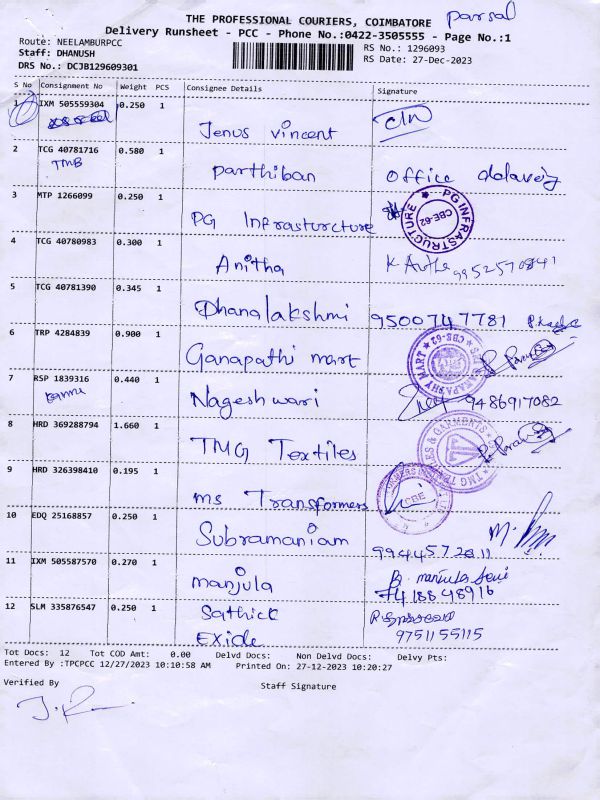 THE PROFESSIONAL COURIERS, COIMBATORE parsal
Delivery Runsheet - PCC - Phone No.:0422-3505555 - Page No.:1
Route: NEELAMBURPCC RS No.: 1296093
Staff: DHANUSH RS Date: 27-Dec-2023
DRS No.: DCJB129609301
S No Consignment No Weight PCS Consignee Details Signature
1 IXM 505559304 0.250 1
Jenus vincent
2 TCG 40781716 0.580 1
TMB parthiban office
3 MTP 1266099 0.250 1
PG Infrasturcture PG INFRASTRUCTURE CBE-62
4 TCG 40780983 0.300 1
Anitha 9952570841
5 TCG 40781390 0.345 1
Dhanalakshmi 9500747781
6 TRP 4284839 0.900 1
Ganapathi mart GANAPATHY MART CBE-62
7 RSP 1839316 0.440 1
Nageshwari 9486917082
8 HRD 369288794 1.660 1
TMG Textiles TMG TEXTILES & GARMENTS
9 HRD 326398410 0.195 1
ms Transformers CBE
10 EDQ 25168857 0.250 1
Subramaniam 9944572811
11 IXM 505587570 0.270 1
manjula 7418848916
12 SLM 335876547 0.250 1 Sathick
Exide 9751155115
Tot Docs: 12 Tot COD Amt: 0.00 Delvd Docs: Non Delvd Docs: Delvy Pts:
Entered By :TPCPCC 12/27/2023 10:10:58 AM Printed On: 27-12-2023 10:20:27
Verified By Staff Signature